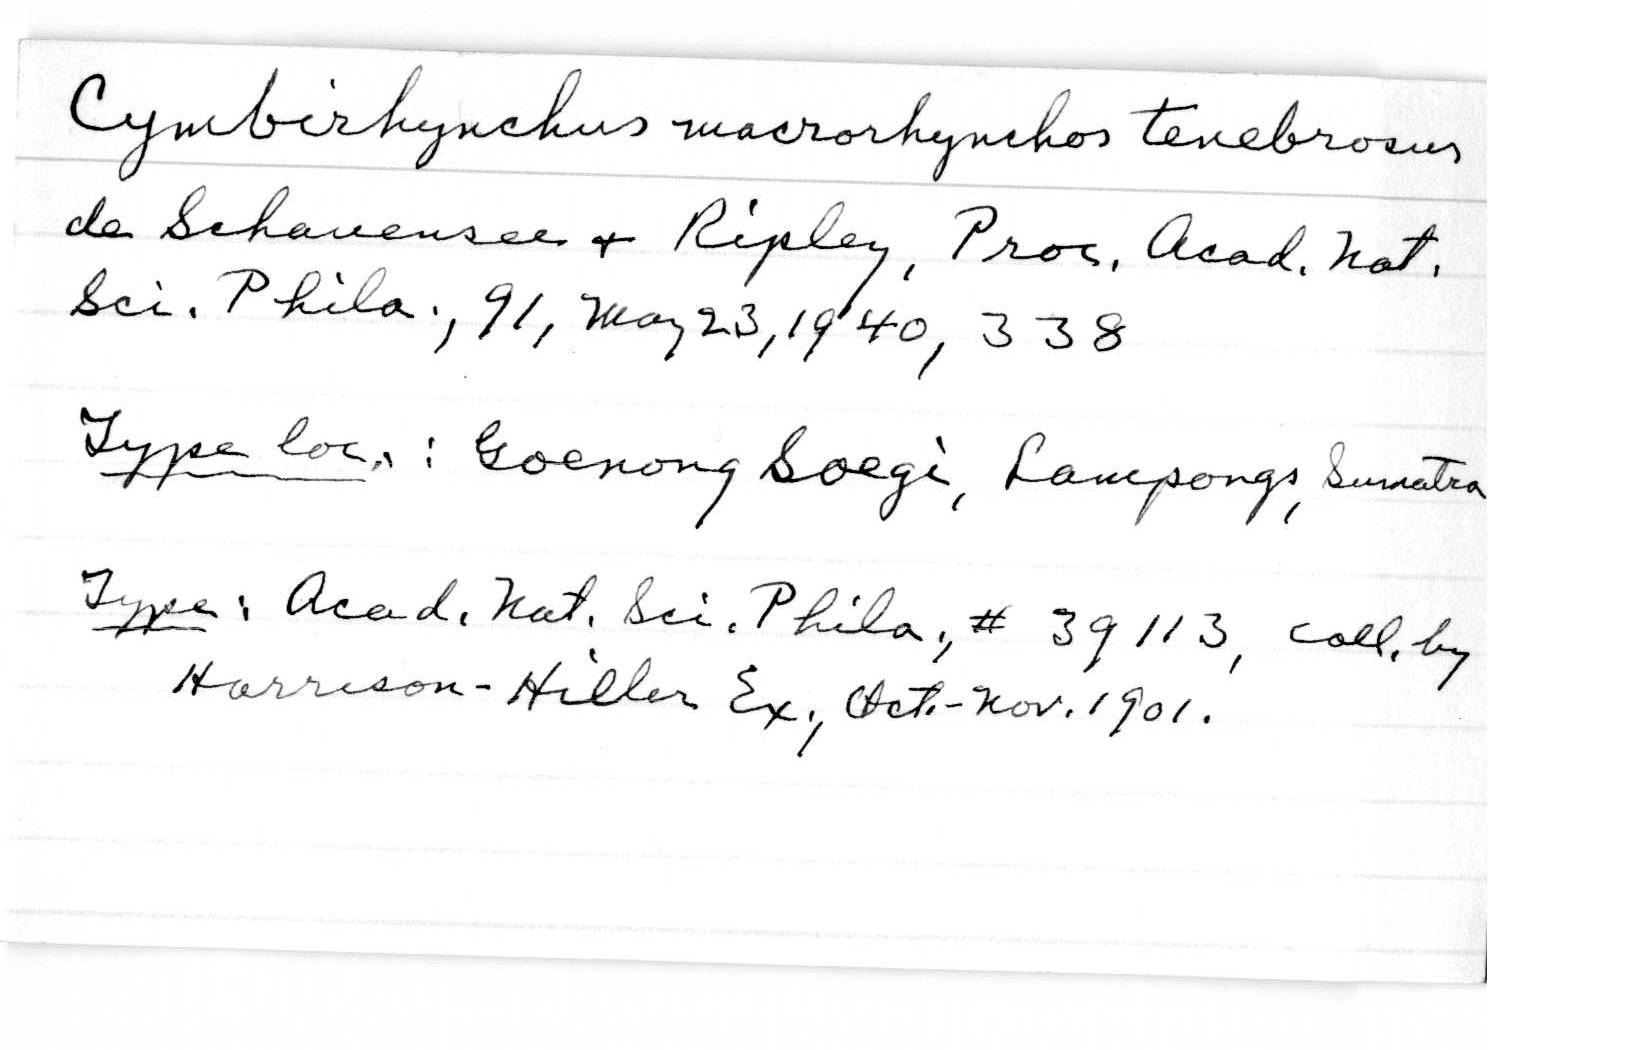 Cymbirhynchus macrorhynchos tenebrosus
de Schauensee + Ripley, Proc. Acad. Nat.
Sci. Phila., 91, May 23, 1940, 338
Type loc.: Goenong Soegi, Lampongs, Sumatra
Type: Acad. Nat. Sci. Phila., # 39113, coll. by
Harrison-Hiller Ex., Oct.-Nov. 1901.